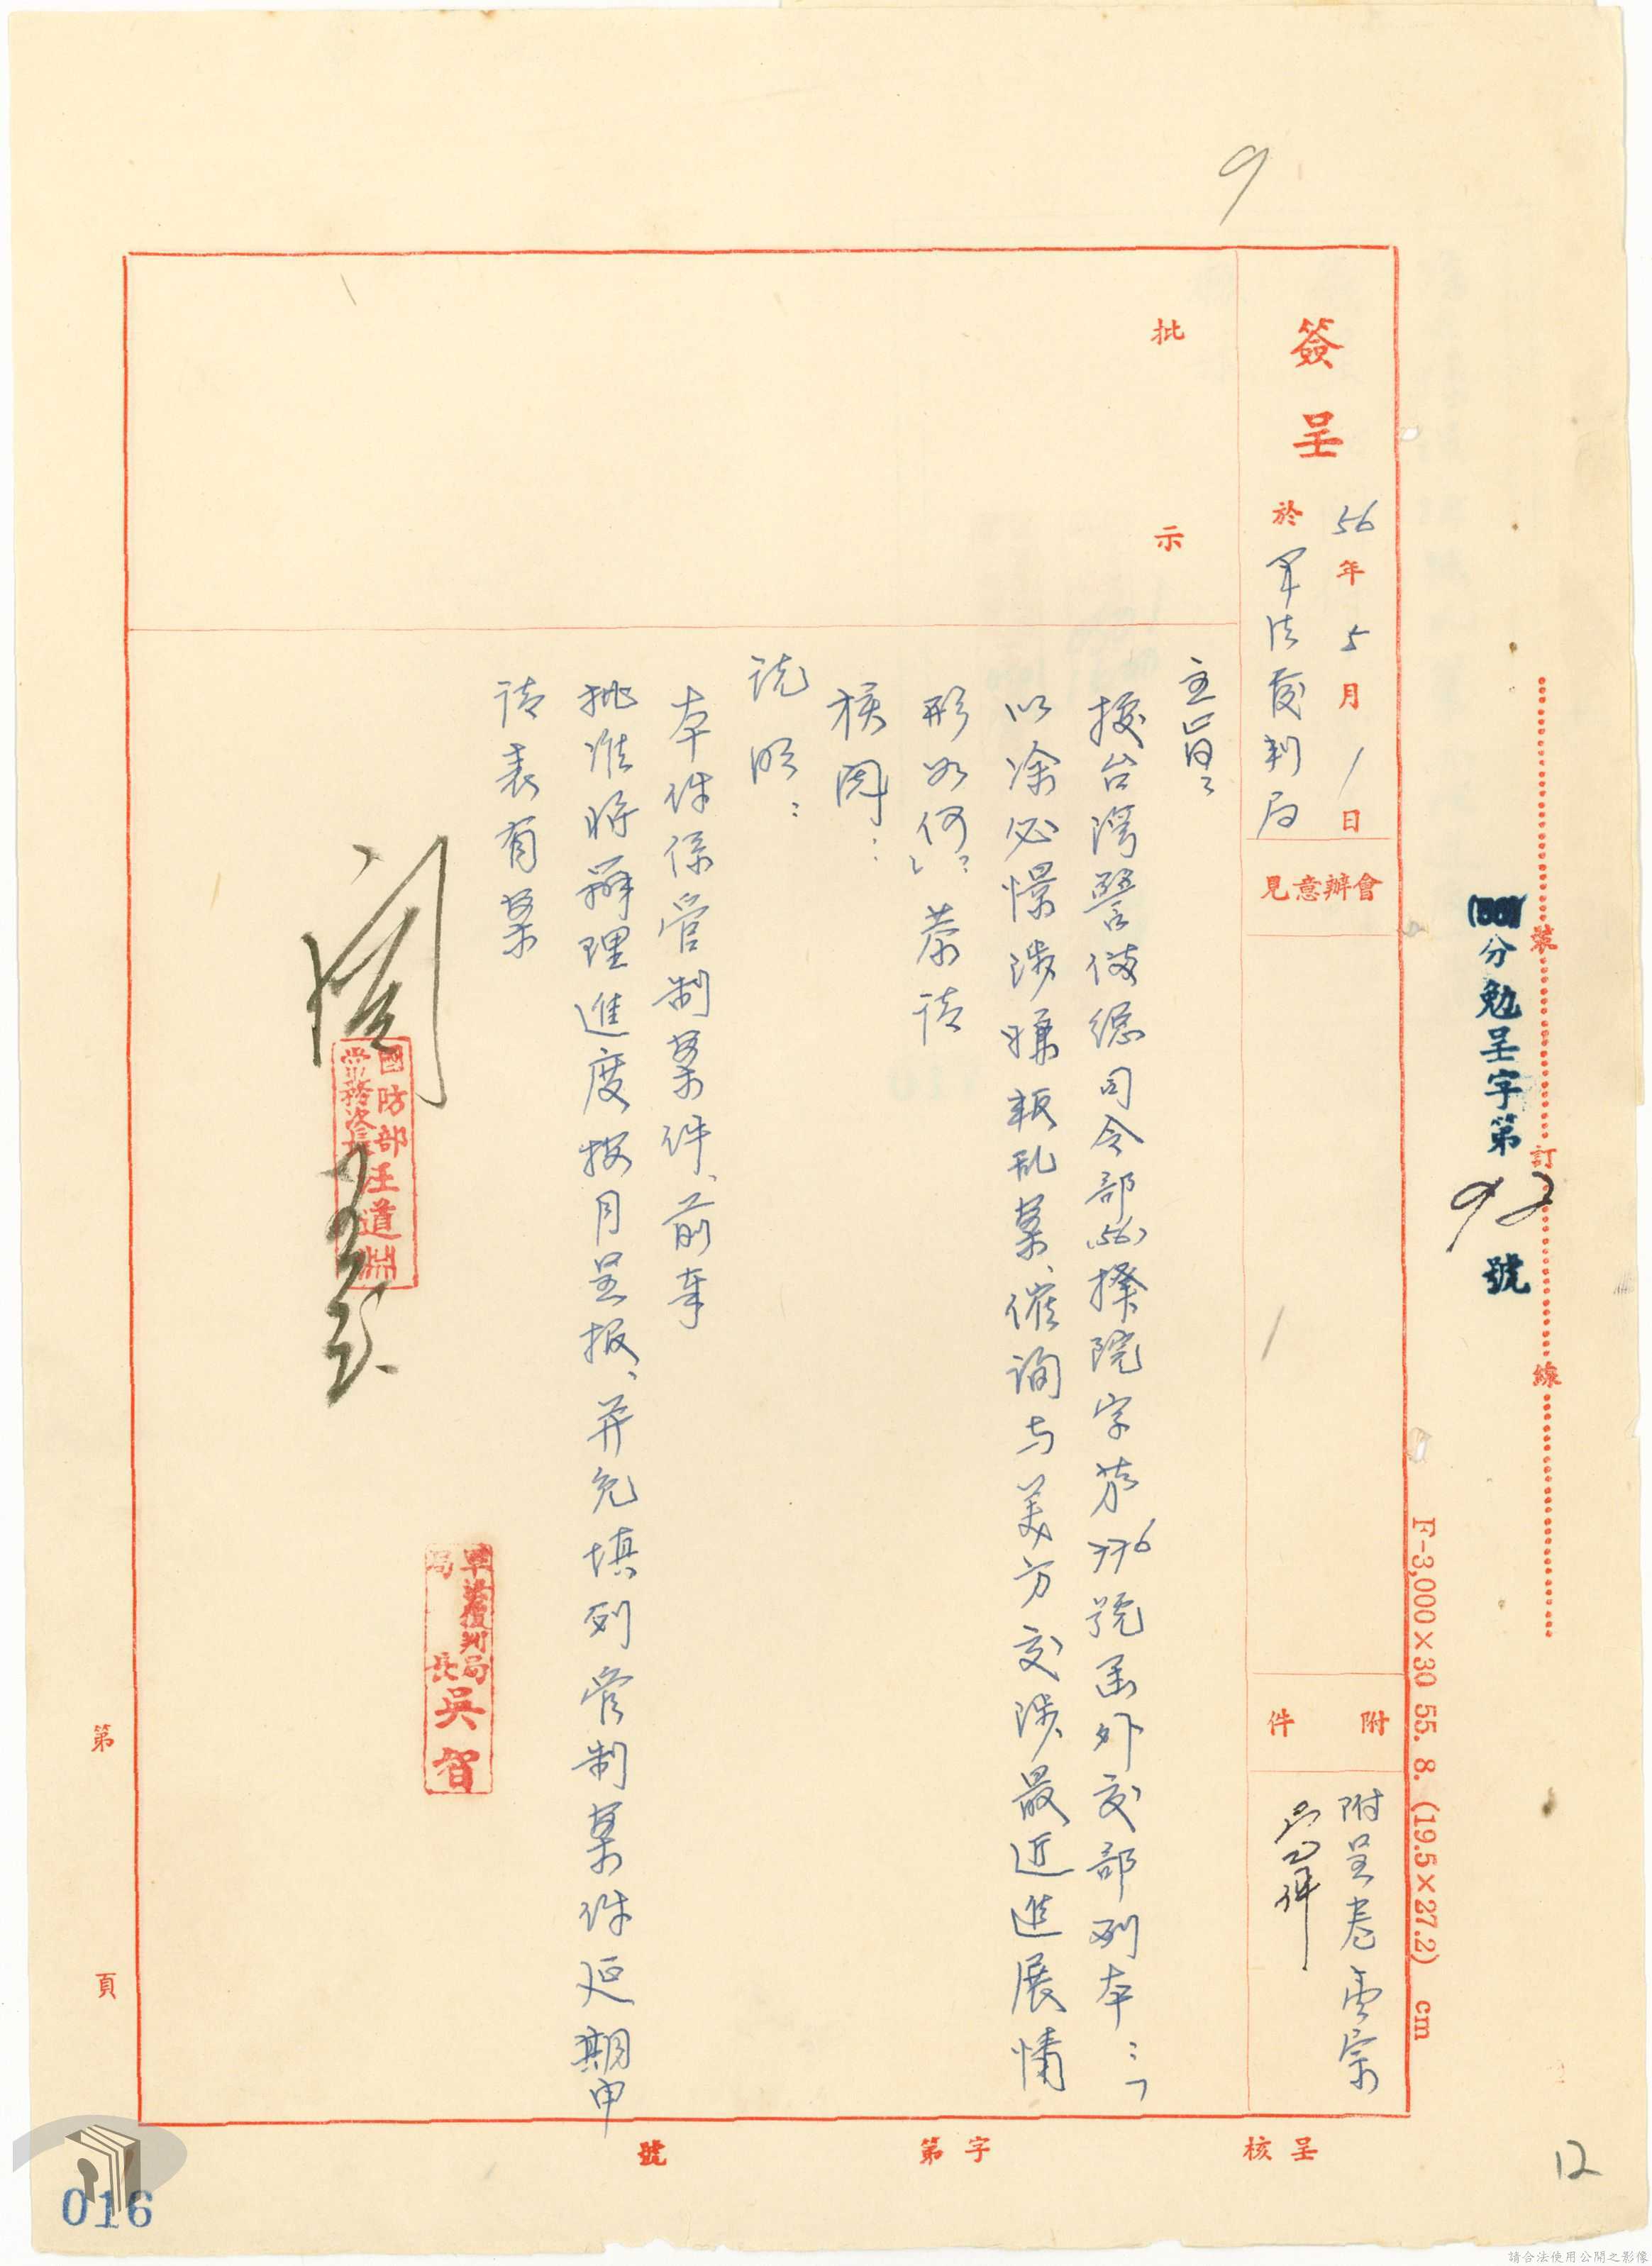 9
簽呈
56年5月1日
於軍法覆判局
會辦意見
附件
附呈卷壹宗
批示
主旨：
據台灣警備總司令部(56)揆院字第776號函外交部副本：「
以涂必憬涉嫌叛乱案、催詢与美方交涉最近進展情
形如何」：恭請
核閱：
說明：
本件係管制案件、前奉
批准將辦理進度按月呈报、并免填列管制案件延期申
請表有案
閱
國防部
常務次長汪道淵
軍法覆判局
局長吳賀
分勉呈字第92號
裝訂線
F-3,000×30 55. 8. (19.5×27.2) cm
呈核
字第
號
第頁
12
016
請合法使用公開之影像